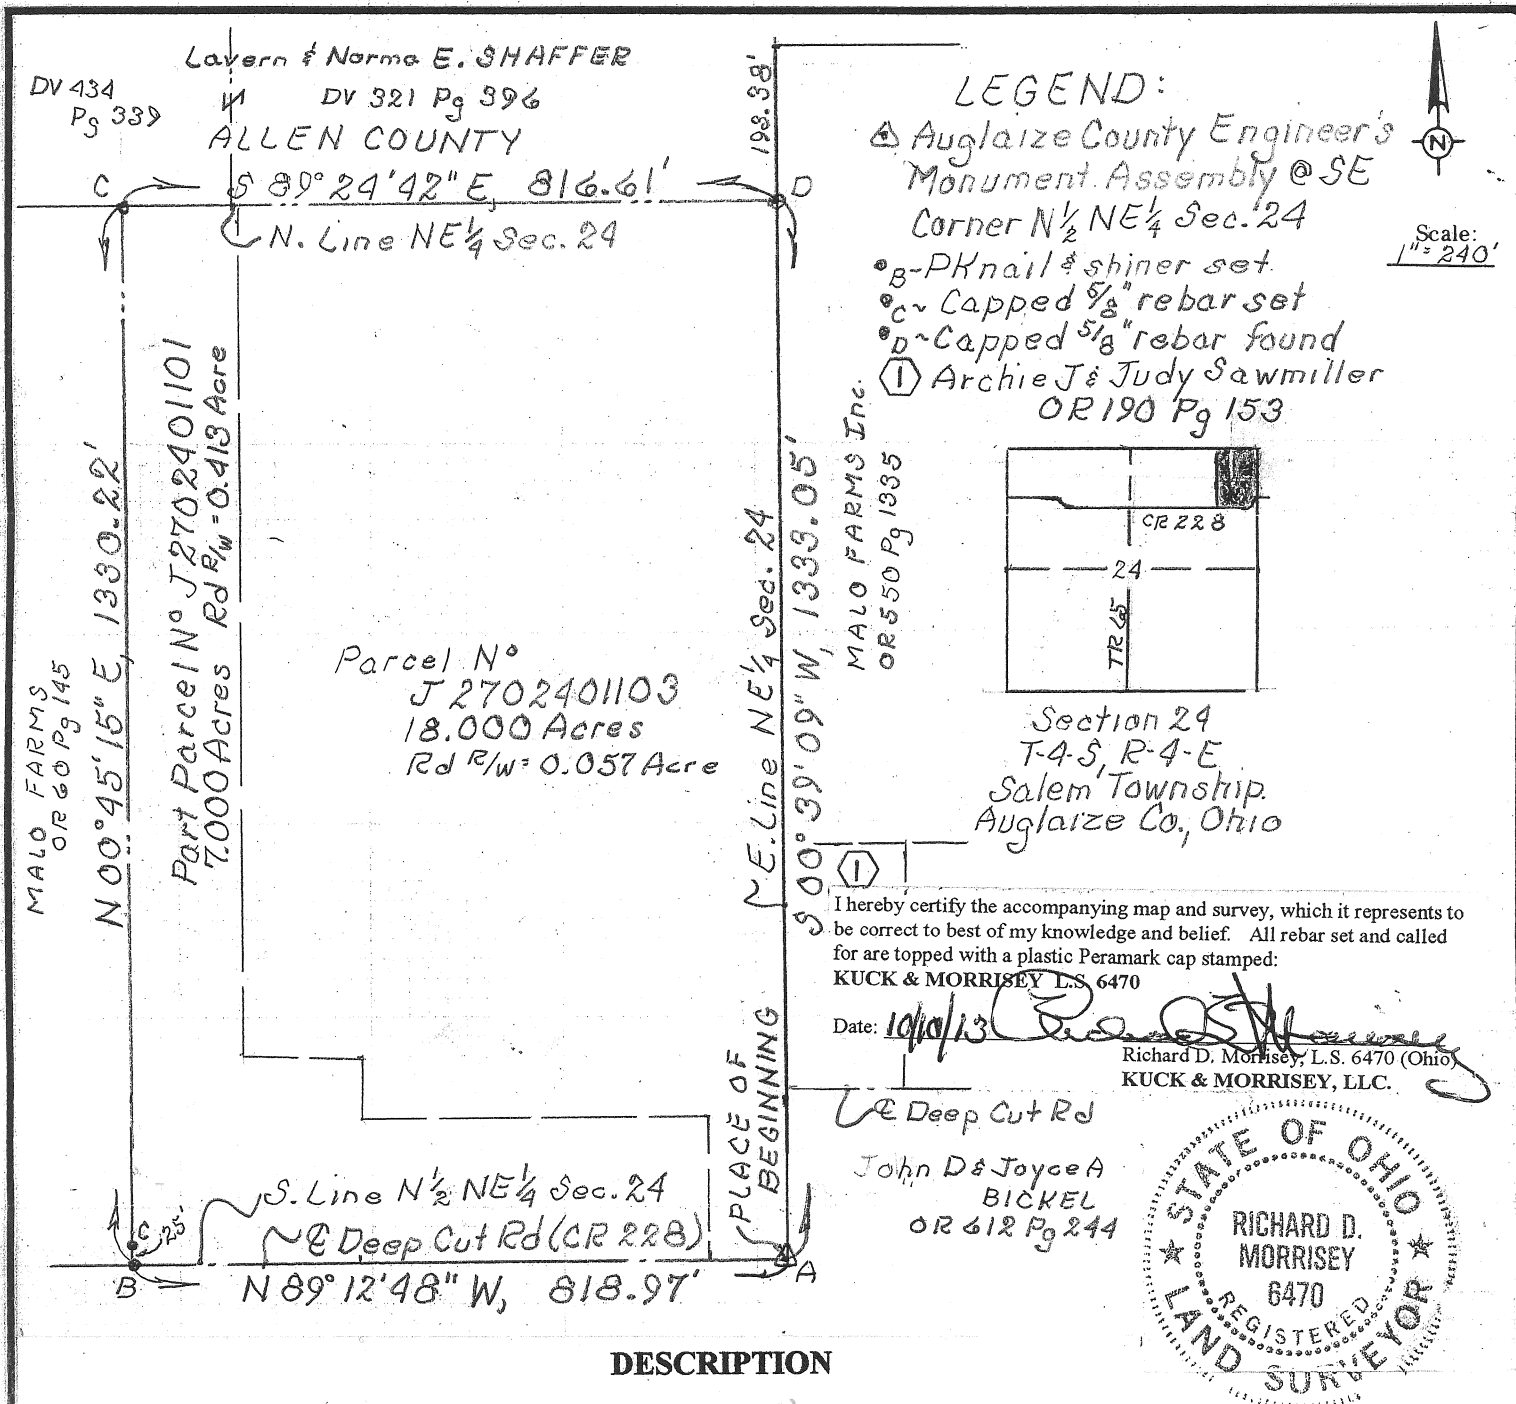 Lavern & Norma E. SHAFFER
DV 434
Pg 339
DV 321 Pg 396
ALLEN COUNTY
C
S 89°24'42" E, 816.61'
D
N. Line NE¼ Sec. 24
198.38'
LEGEND:
Auglaize County Engineer's
Monument Assembly @ SE
Corner N½ NE¼ Sec. 24
B-PK nail & shiner set
C- Capped 5/8" rebar set
D- Capped 5/8" rebar found
1 Archie J & Judy Sawmiller
OR 190 Pg 153
N
Scale:
1"=240'
MALO FARMS
OR 60 Pg 145
N 00°45'15" E, 1330.22'
Part Parcel Nº J2702401101
7.000 Acres Rd R/w = 0.413 Acre
Parcel Nº
J2702401103
18.000 Acres
Rd R/w = 0.057 Acre
E. Line NE¼ Sec. 24
S 00°39'09" W, 1333.05'
MALO FARMS Inc.
OR 550 Pg 1335
CR 228
24
TR 65
Section 24
T-4-S, R-4-E
Salem Township.
Auglaize Co., Ohio
1
I hereby certify the accompanying map and survey, which it represents to
be correct to best of my knowledge and belief. All rebar set and called
for are topped with a plastic Peramark cap stamped:
KUCK & MORRISEY L.S. 6470
Date: 10/10/13
Richard D. Morrisey, L.S. 6470 (Ohio)
KUCK & MORRISEY, LLC.
PLACE OF
BEGINNING
℄ Deep Cut Rd
John D & Joyce A
BICKEL
OR 612 Pg 244
S. Line N½ NE¼ Sec. 24
℄ Deep Cut Rd (CR 228)
C
25'
B
N 89°12'48" W, 818.97'
A
STATE OF OHIO
RICHARD D.
MORRISEY
6470
REGISTERED
LAND SURVEYOR
DESCRIPTION